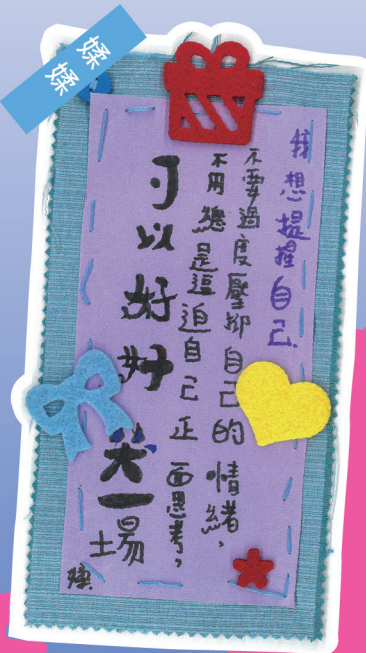 媃媃
我想提醒自己
不要過度壓抑自己的情緒，
不用總是逼迫自己正面思考，
可以好好哭一場
媃